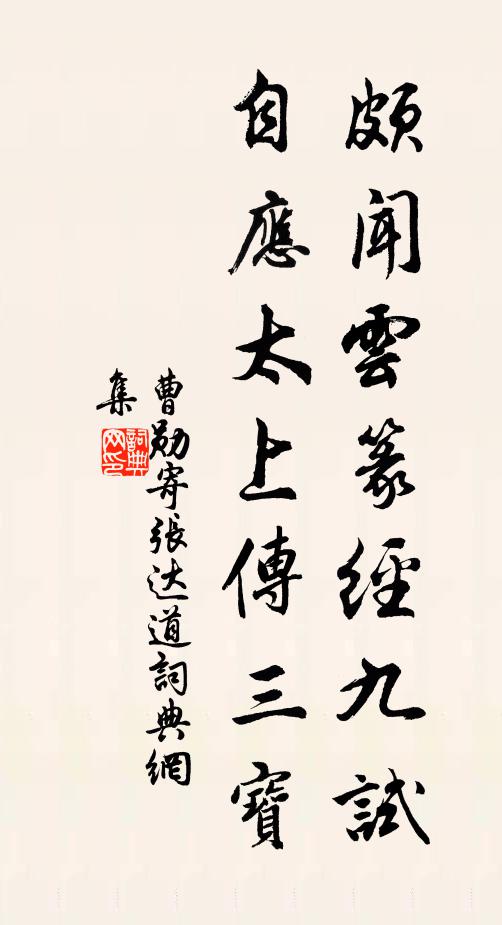 頗聞雲篆經九試
自應太上傳三寶
曹勋寄張达道詞典網
集
詞典
网印